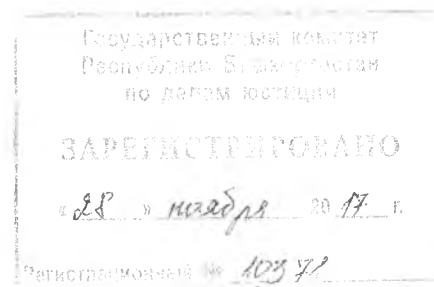 Государственный комитет
Республики Башкортостан
по делам юстиции
ЗАРЕГИСТРИРОВАНО
« 28 » ноября 20 17 г.
Регистрационный № 10371